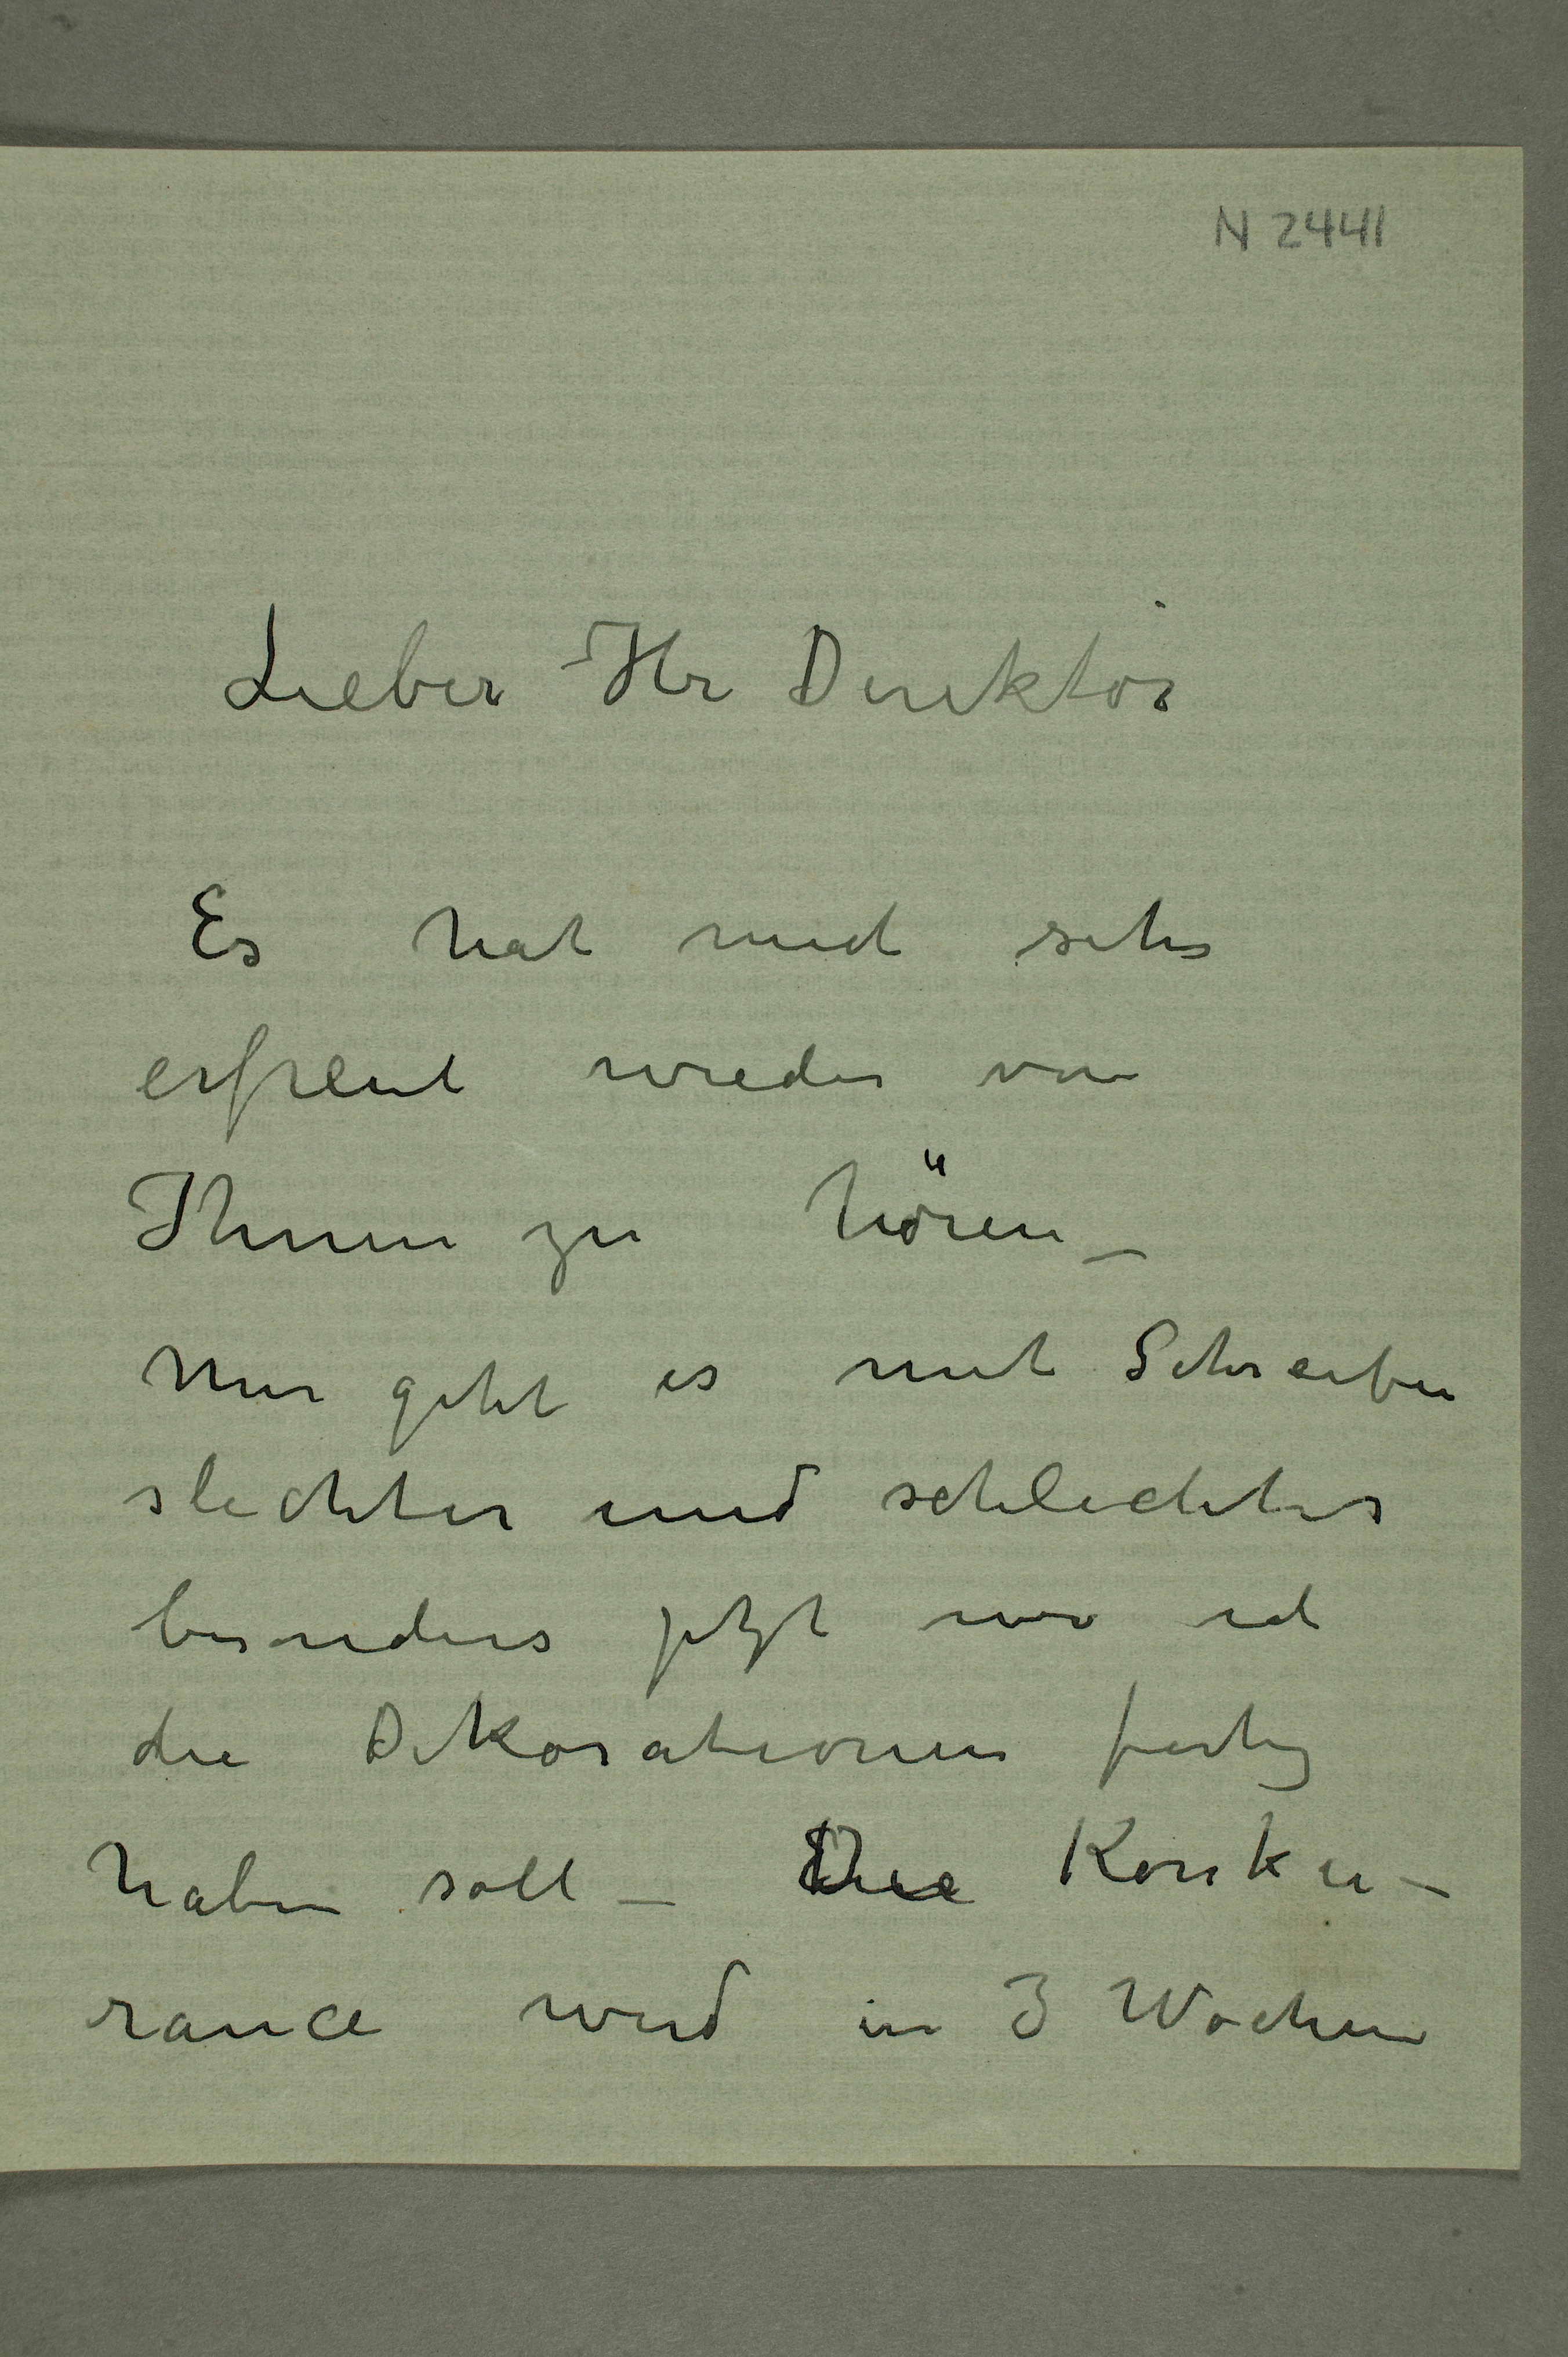 N 2441
Lieber Hr Direktor
Es hat mich sehr
erfreut wieder von
Ihnen zu hören –
Mir geht es mit Schreiben
slechter und schlechter
besonders jetzt wo ich
die Dekorationen fertig
haben soll – Die Konku–
rance wird in 3 Wochen